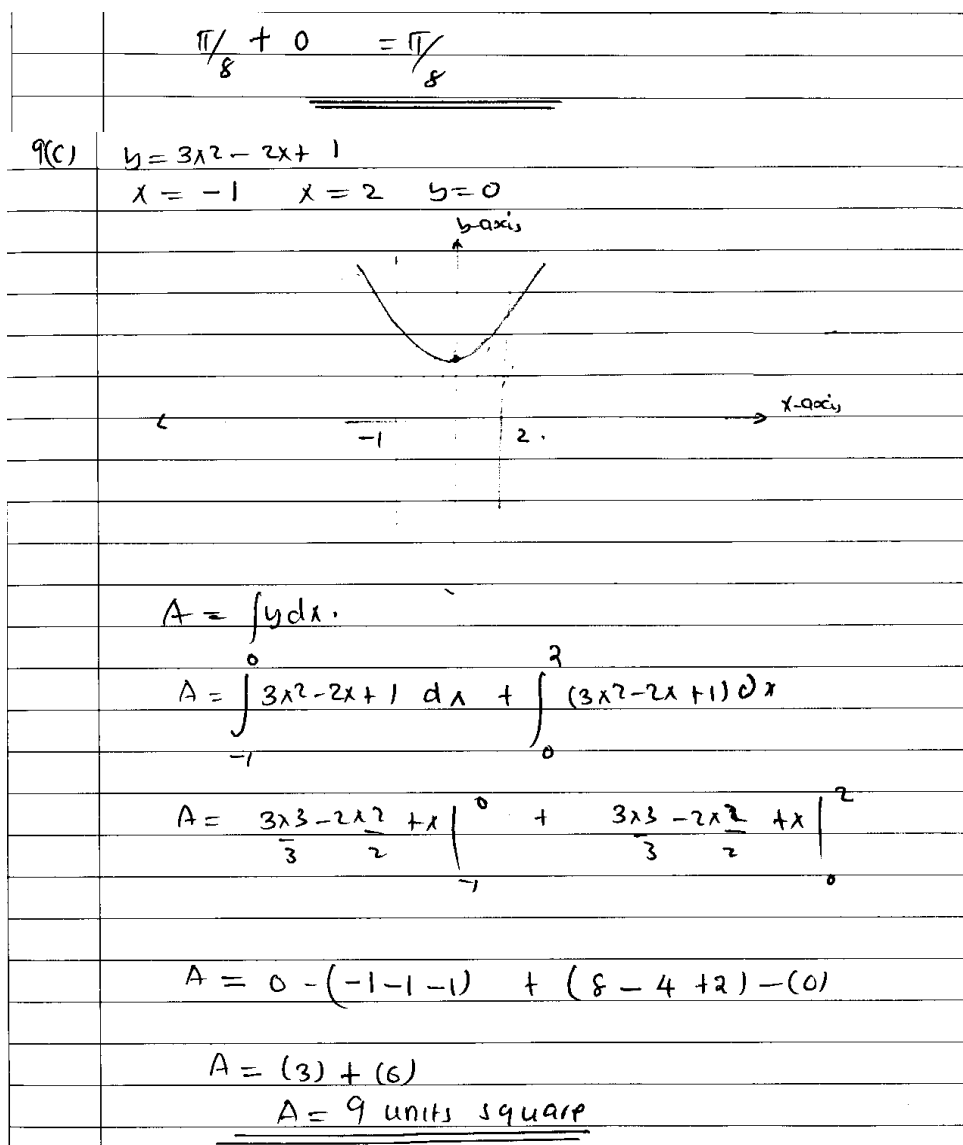 π/8 + 0 = π/8
9(c) y = 3x² - 2x + 1
x = -1 x = 2 y = 0
y-axis
x-axis
-1 2.
A = ∫y dx.
A = ∫_{-1}^{0} 3x² - 2x + 1 dx + ∫_{0}^{2} (3x² - 2x + 1) dx
A = 3x³/3 - 2x²/2 + x |_{-1}^{0} + 3x³/3 - 2x²/2 + x |_{0}^{2}
A = 0 - (-1 - 1 - 1) + (8 - 4 + 2) - (0)
A = (3) + (6)
A = 9 units square